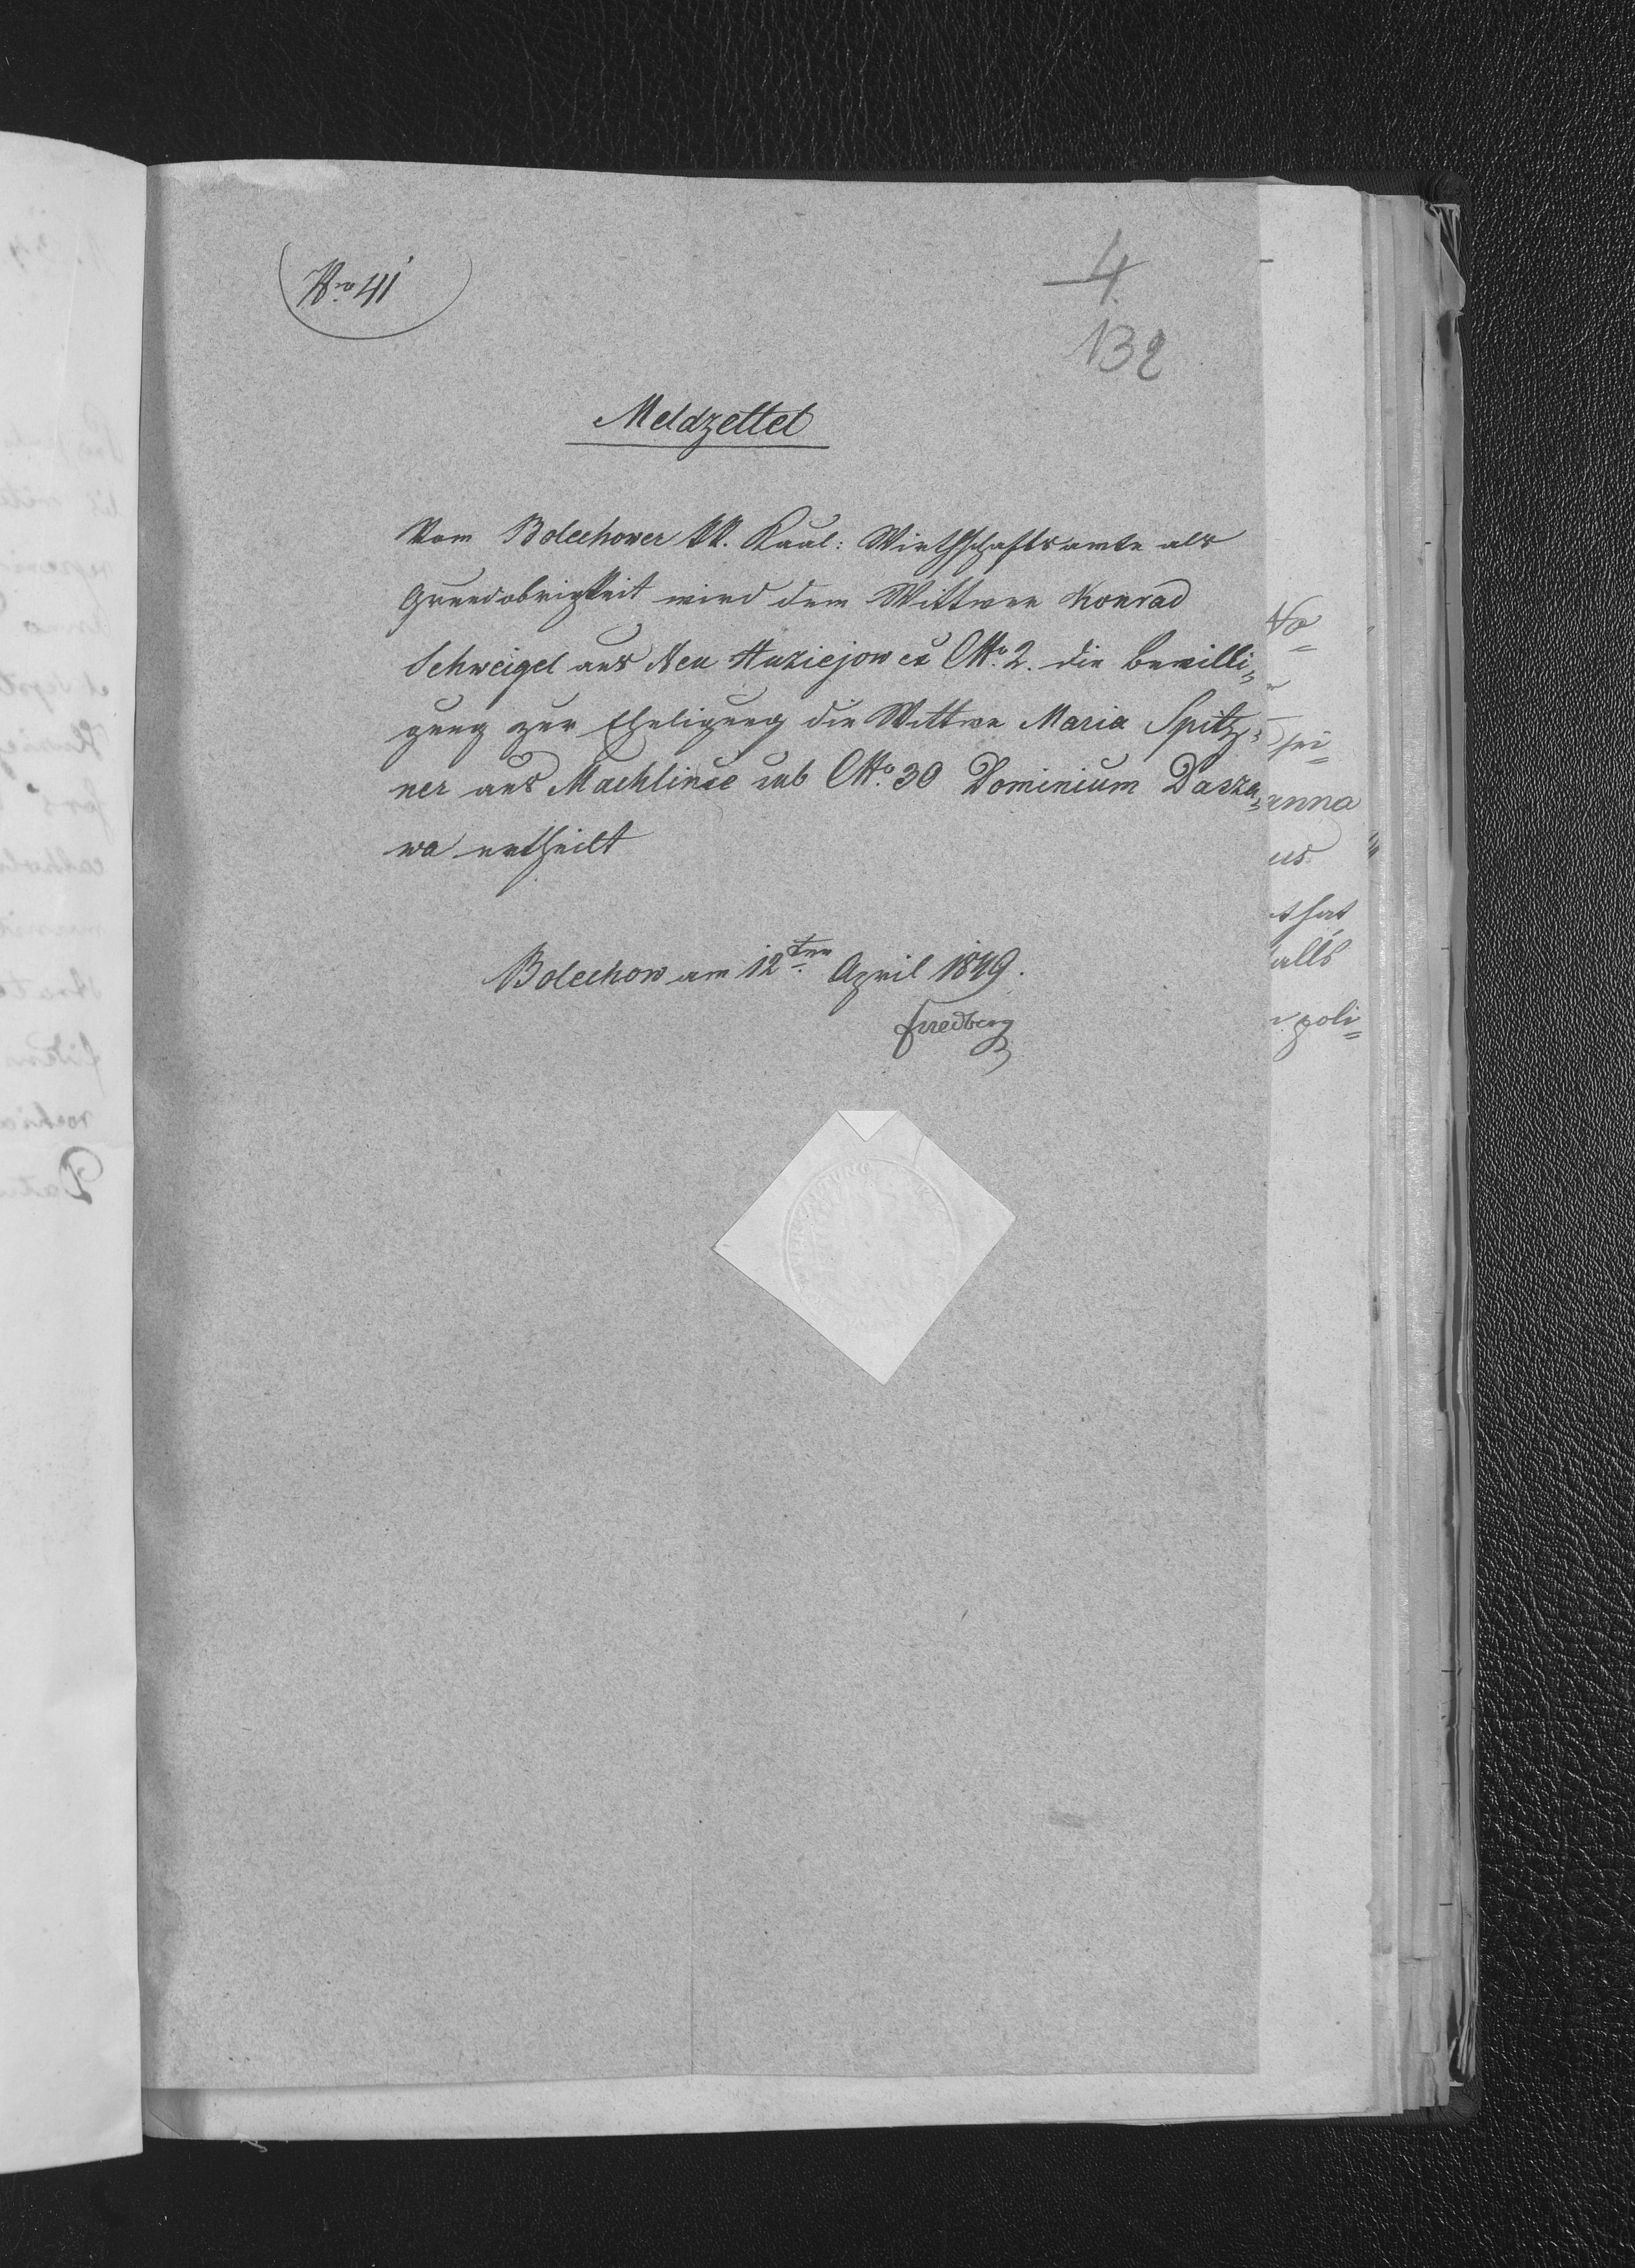 Nro 41
4.
132
Meldzettel
Vom Bolechower kk. Kaal: Wirthschaftsamte als
Grundobrigkeit wird dem Wittwer Konrad
Schweigel aus Neu Huziejow CNo. 2. die Bewilli=
gung zur Eheligung die Wittwe Maria Spitz=
ner aus Machlince sub CNo. 30 Dominium Dasza=
wa ertheilt
Bolechow am 12ten April 1849.
Friedberg